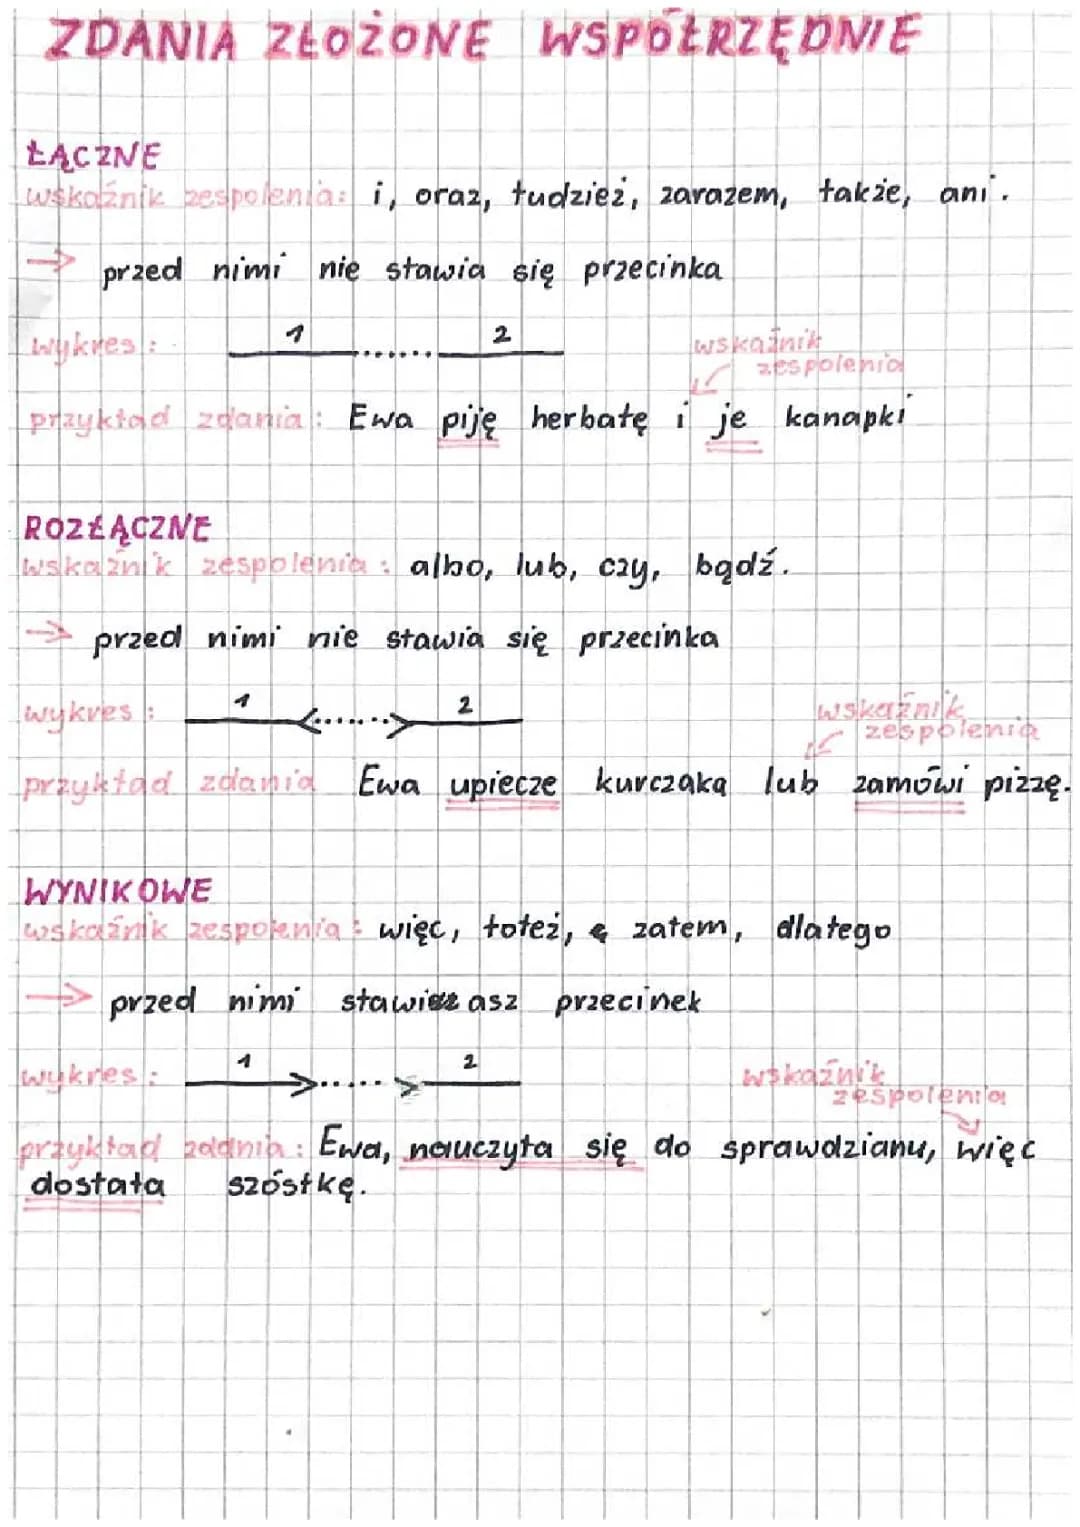 ZDANIA ZŁOŻONE WSPÓŁRZĘDNIE
ŁĄCZNE
wskaźnik zespolenia: i, oraz, tudzież, zarazem, także, ani.
→ przed nimi nie stawia się przecinka
wykres: 1 ...... 2
wskaźnik
zespolenia
przykład zdania: Ewa piję herbatę i je kanapki
ROZŁĄCZNE
wskaźnik zespolenia: albo, lub, czy, bądź.
→ przed nimi nie stawia się przecinka
wykres: 1 <......> 2
wskaźnik
zespolenia
przykład zdania Ewa upiecze kurczaka lub zamówi pizzę.
WYNIKOWE
wskaźnik zespolenia: więc, toteż, zatem, dlatego
→ przed nimi stawiasz przecinek
wykres: 1 >.....> 2
wskaźnik
zespolenia
przykład zdania: Ewa, nauczyła się do sprawdzianu, więc
dostała szóstkę.